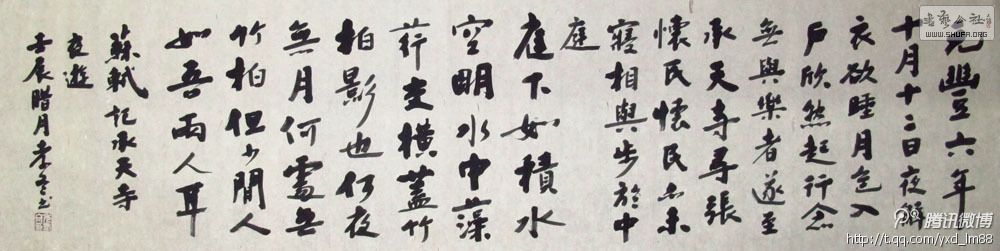 元豐六年
十月十二日夜解
衣欲睡月色入
戶欣然起行念
無與樂者遂至
承天寺尋張
懷民懷民亦未
寢相與步於中
庭
庭下如積水
空明水中藻
荇交橫蓋竹
柏影也何夜
無月何處無
竹柏但少閒人
如吾兩人耳
蘇軾記承天寺
夜遊
壬辰腊月李书
书艺公社
WWW.SHUFA.ORG
腾讯微博
http://t.qq.com/yxd_lm88